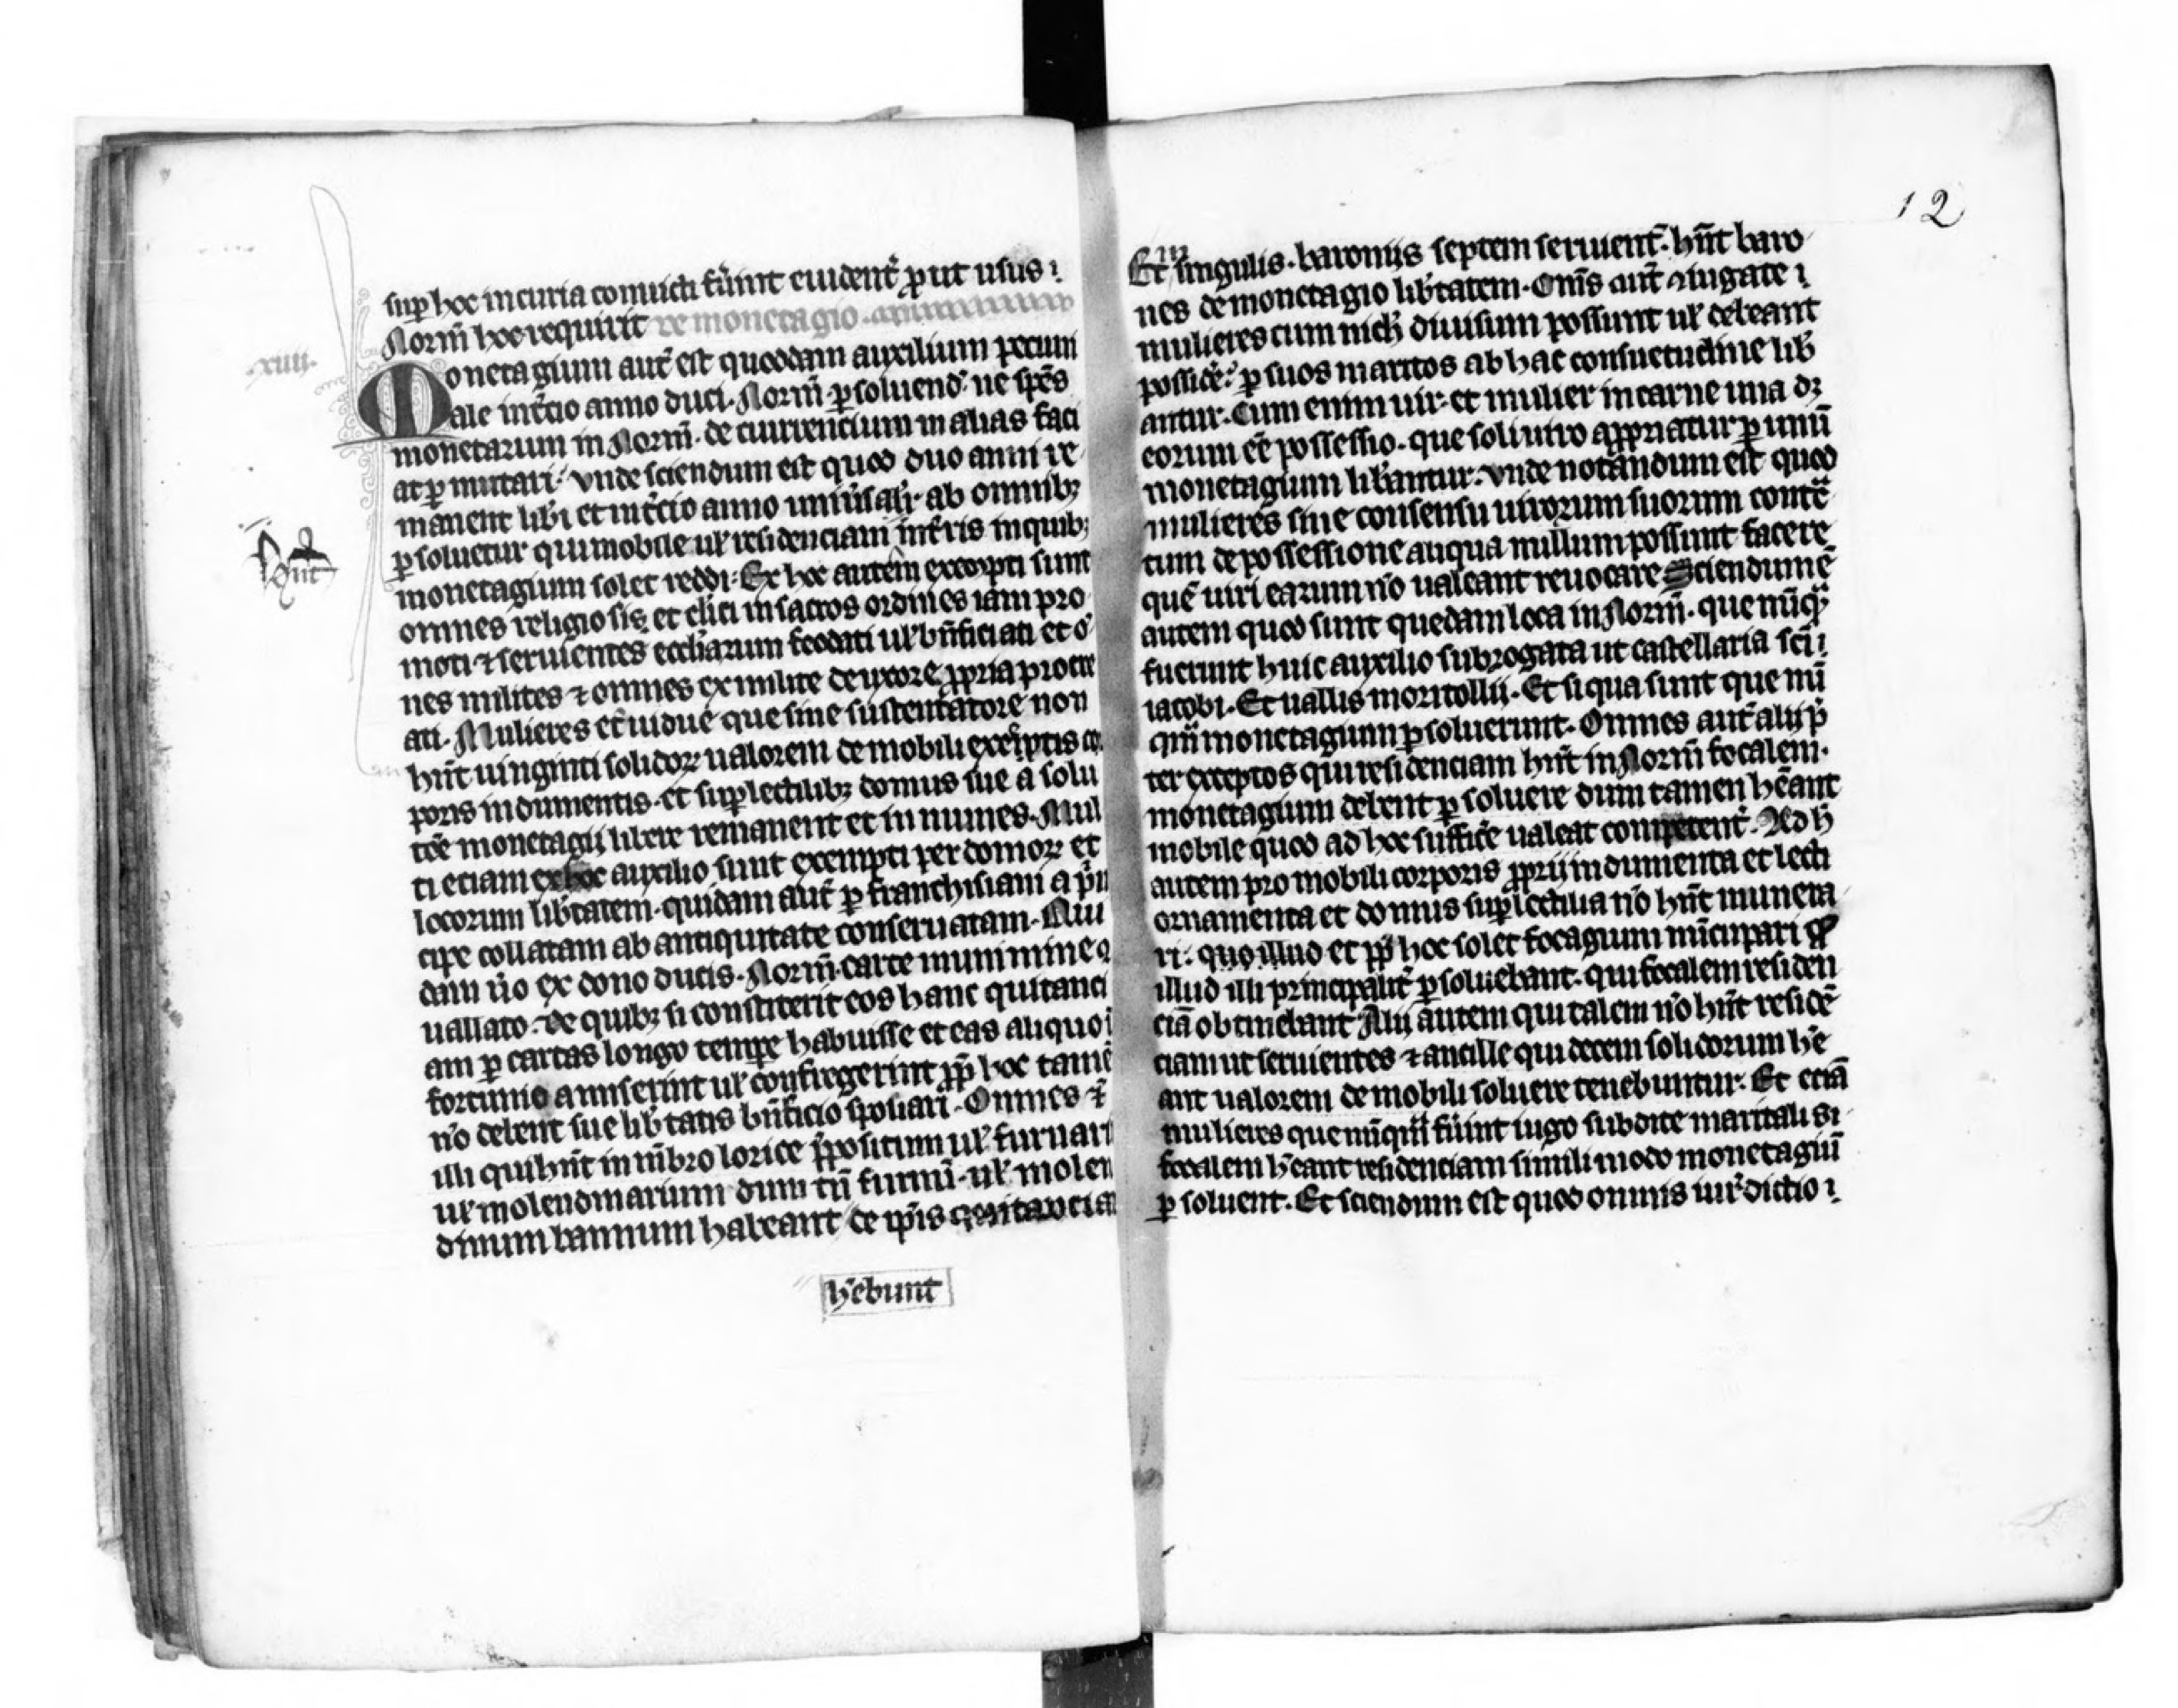 sup̱ hoc in curia conuicti fu̾int euident̾ ꝓut usus ⁊
Norm̄ hoc requirit de monetagio
.xiiii.
Monetagium aut̾ est quoddam auxilium pecuni
ale in t̾cio anno duci. Norm̄ ꝑsoluend̾. ne sp̄es
monetarum in Norm̄. decurrencium in alias faci
at ꝑmutari. vnde sciendum est quod duo anni re
manent lib̾i et in t̾cio anno uniu̾salr̾ ab omnibꝫ
ꝑsoluetur qui mobile ul̾ residenciam in t̾ris in quibꝫ
monetagium solet reddi. Ex hoc autem excepti sunt
omnes religiosi et cl̾ici in sacros ordines iam pro
moti ⁊ seruientes eccl̾iarum feodati ul̾ bn̄ficiati et o
nes milites ⁊ omnes ex milite de uxore ꝓpria procre
ati. Mulieres et̾ uidue que sine sustentatore non
Hn̄t
hn̄t uinginti solidoꝝ ualorem de mobili exceptis cor
poris indumentis. et sup̱lectilibꝫ domus sue a solu
coe̅ monetagij libere remanent et in munes. Mul
ti eciam ex hoc auxilio sunt exempti per domoꝝ et
locorum lib̾tatem. quidam aut̾ ꝑ franchisiam a p̾n
cipe collatam ab antiquitate conseruatam. Qui
dam u̾o ex dono ducis. Norm̄. carte munimine
uallato. de quibꝫ si constiterit eos hanc quitanci
am ꝑ cartas longo tempe̱ habuisse et eas aliquo i
fortunio amiserint ul̾ confregerint ꝓp̄ hoc tame̅
no̅ debent sue lib̾tatis bn̄ficio spoliari. Omnes ⁊̾
illi qui hn̄t in me̅bro lorice p̄positum ul̾ furnari
ul̾ molendinarium dum tn̄ furni. ul̾ molen
dinum bannum habeant de ip̄is quitancia
he̅bunt
12
Et in singulis. baronijs septem seruient̾. hn̄t baro
nes de monetagio lib̾tatem. Om̄s aut̾ ꝯiugate ⁊
mulieres cum nich̾ diuisum possunt ul̾ debeant
posside̅. ꝑ suos maritos ab hac consuetudine lib̾
antur. Cum enim uir. et mulier in carne una dꝫ
eorum ee̅ possessio. que soli uiro apꝓpriatur ꝑ unū
monetagium lib̾antur. vnde notandum est quod
mulieres sine consensu uirorum suorum contra̅
ctum de possessione aliqua nullum possunt facere
que̅ uiri earum no̅ ualeant reuocare Sciendum e̅
autem quod sunt quedam loca in Norm̄. que nu̅qᵃ̄
fuerunt huic auxilio subrogata ut castellaria sc̄i
iacobi. Et uallis moritollij. Et si qua sunt que nu̅
qᵃ̄m monetagium ꝑsoluerunt. Omnes aut̾ alij p̄
ter exceptos qui residenciam hn̄t in Norm̄ focalem.
monetagium debent ꝑsoluere dum tamen he̅ant
mobile quod ad hoc suffice̅ ualeat competent̾. Ad h̾
autem pro mobili corporis ꝓprij indumenta et lecti
ornamenta et domus sup̱lectilia no̅ hn̄t munera
ri. quo illud et ꝓp̄ hoc solet focagium nu̅cupari ꝙ
illud illi principalit̾ ꝑsoluebant. qui focalem residen
cia̅ obtinebant Alij autem qui talem no̅ hn̄t reside̅
ciam ut seruientes ⁊ ancille qui decem solidorum he̅
ant ualorem de mobili soluere tenebuntur. Et ecia̅
mulieres que nu̅qᵃ̄m fu̾int iugo subdite maritali si
focalem he̅ant residenciam simili modo monetagiū
ꝑsoluent. Et sciendum est quod omnis iur̾dictio ⁊